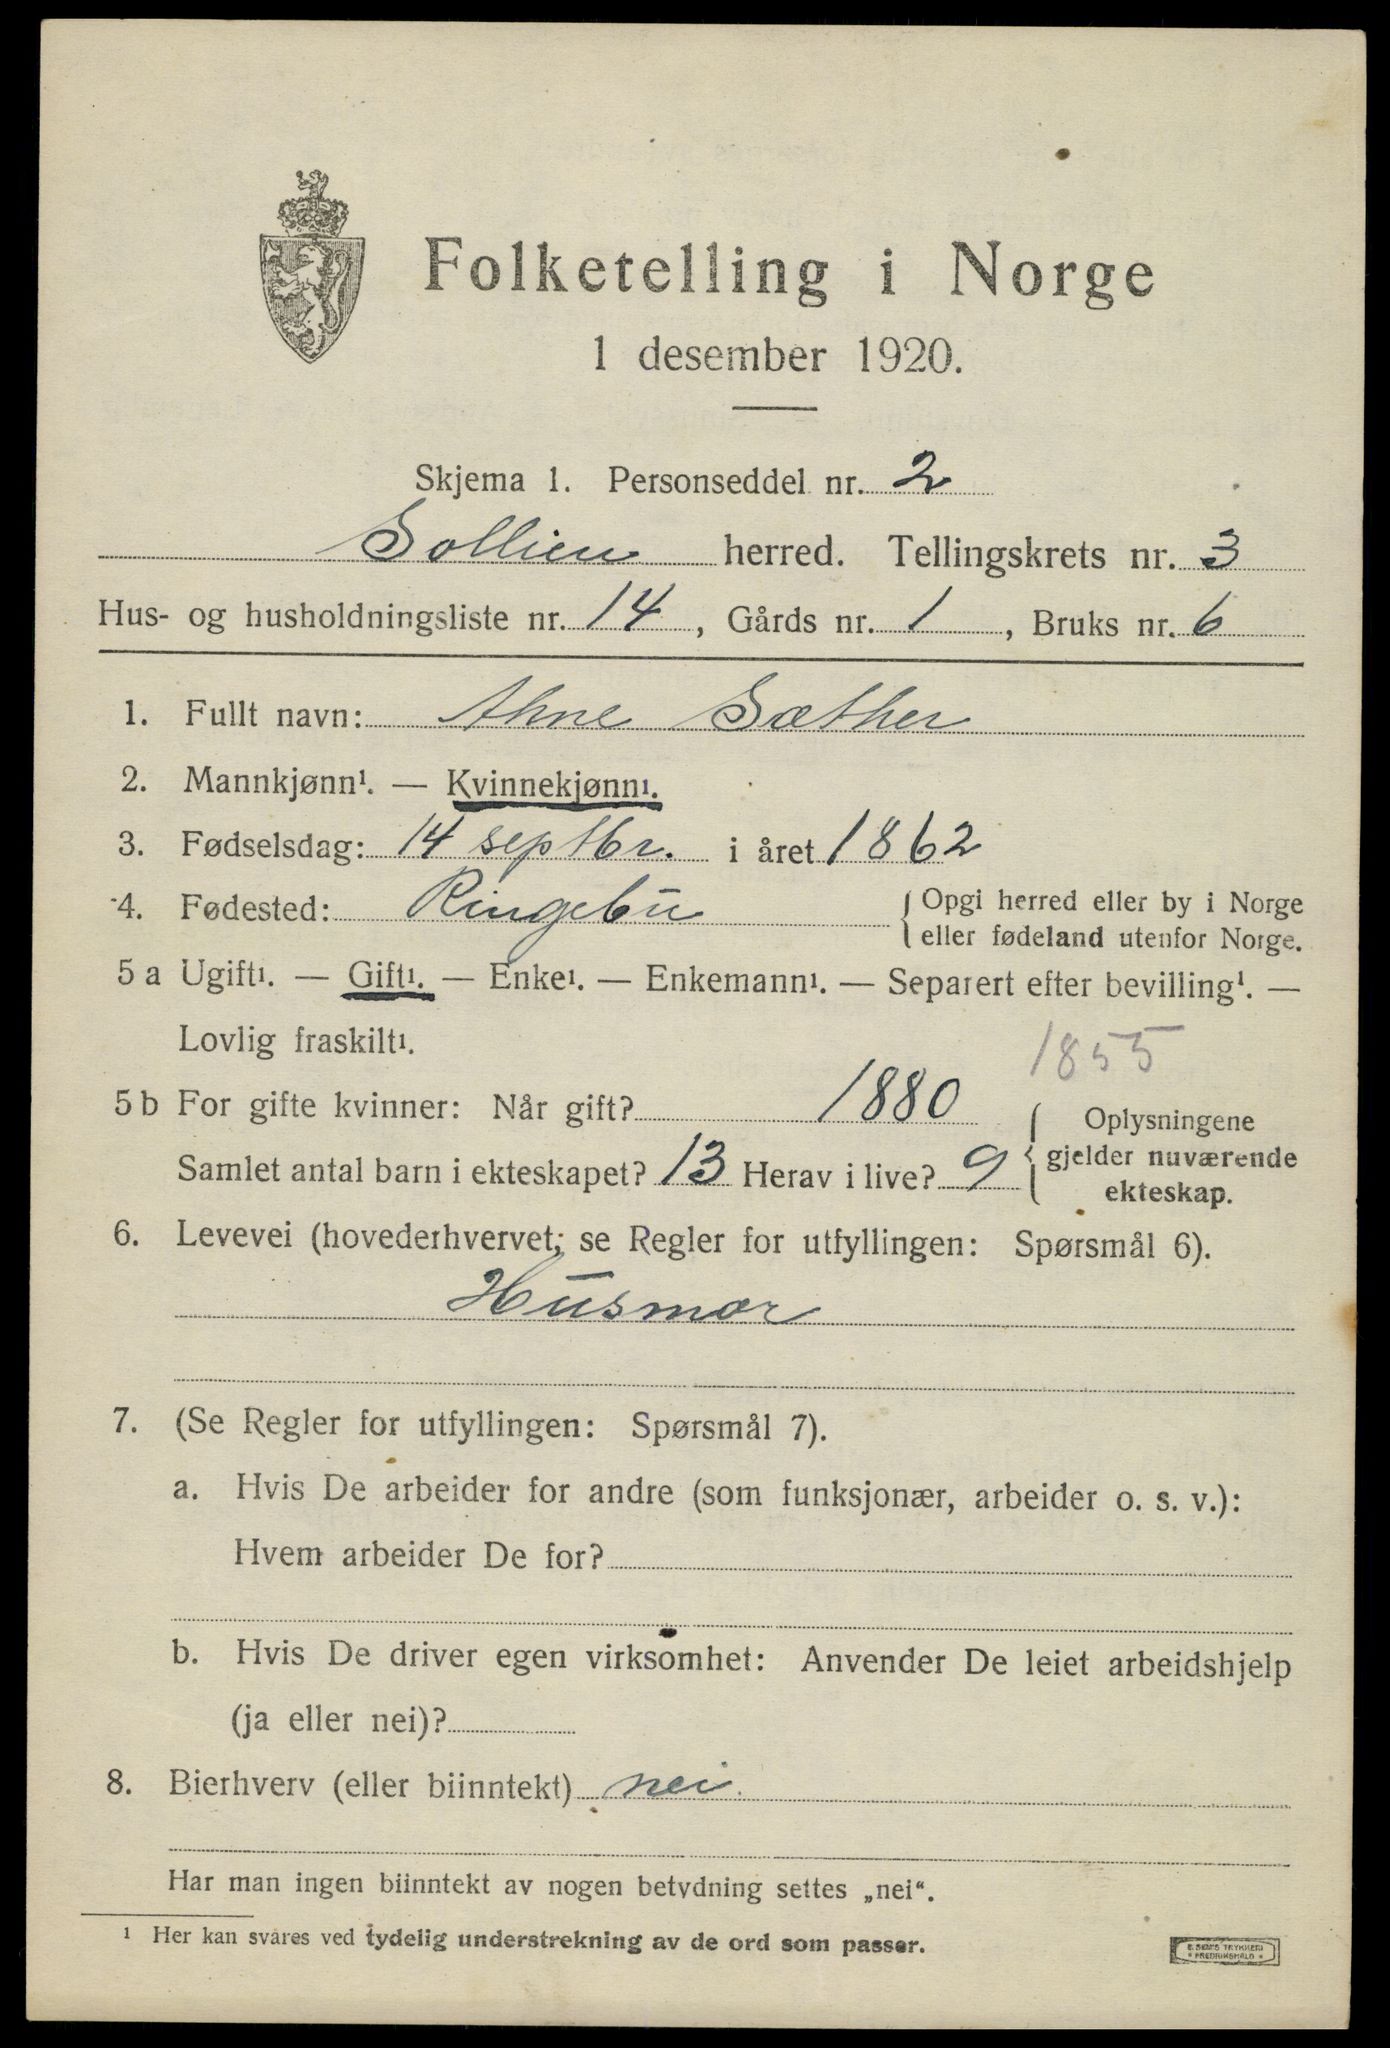 Folketelling i Norge
1 desember 1920.
Skjema 1. Personseddel nr. 2
Sollien herred. Tellingskrets nr. 3
Hus- og husholdningsliste nr. 14, Gårds nr. 1, Bruks nr. 6
1. Fullt navn: Ahne Sæther
2. Mannkjønn¹. — Kvinnekjønn¹.
3. Fødselsdag: 14 septbr. i året 1862
4. Fødested: Ringebu
{ Opgi herred eller by i Norge
eller fødeland utenfor Norge.
5 a Ugift¹. — Gift¹. — Enke¹. — Enkemann¹. — Separert efter bevilling¹. —
Lovlig fraskilt¹.
1855
5 b For gifte kvinner: Når gift? 1880
Samlet antal barn i ekteskapet? 13 Herav i live? 9
{ Oplysningene
gjelder nuværende
ekteskap.
6. Levevei (hovederhvervet; se Regler for utfyllingen: Spørsmål 6).
Husmor
7. (Se Regler for utfyllingen: Spørsmål 7).
a. Hvis De arbeider for andre (som funksjonær, arbeider o. s. v.):
Hvem arbeider De for?
b. Hvis De driver egen virksomhet: Anvender De leiet arbeidshjelp
(ja eller nei)?
8. Bierhverv (eller biinntekt) nei.
Har man ingen biinntekt av nogen betydning settes „nei“.
¹ Her kan svares ved tydelig understrekning av de ord som passer.
E. SEM'S TRYKKERI
* FREDRIKSHALD *